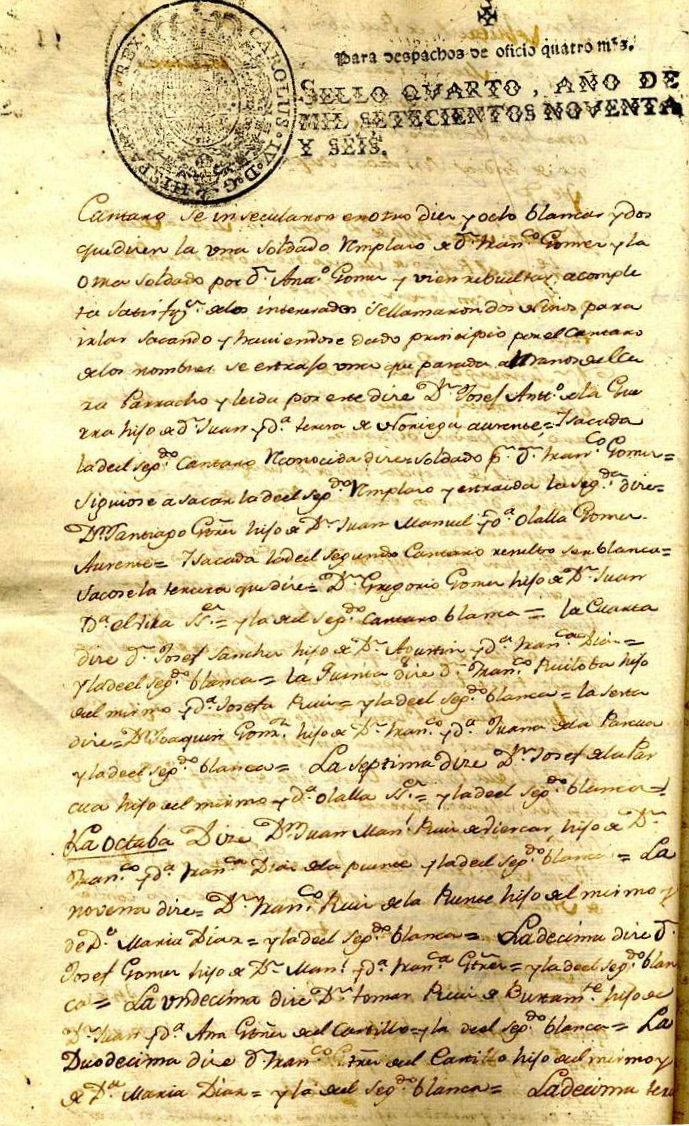 CAROLUS IV D G HISPANIAR REX
Para despachos de oficio quatro mrs.
SELLO QVARTO, AÑO DE
MIL SETECIENTOS NOVENTA
Y SEIS.
Cantaro se insecularon en otro diez y ocho blancas y dos
que dicen la una soldado Umplazo de Dn. Franco Gomez y la
otra soldado por Dn. Anto Gomez y vien rebueltas, a comple
ta satisfon. de los interesados se llamaron dos Niños para
irlas sacando y haviendose dado principio por el Cantaro
de los nombres se extrajo una que pasada a manos del Cu
ra Parracho y leida por este dice Dn. Josef Anto. de la Gue
rra hijo de Dn. Juan y Da. teresa de Noriega ausente = Y sacada
la del segdo Cantaro Uconocida dice = soldado pr. Dn. Franco Gomez =
siguiose a sacar la del segdo Umplazo y extraida la segda dice =
Dn. Santiago hijo de Dn. Juan Manuel y Da. olalla Gomez
Ausente = Y sacada la del segundo Cantaro resulto ser blanca =
sacose la tercera que dice = Dn. Gregorio Gomez hijo de Dn. Juan
Da. = y la del segdo Cantaro blanca = la Cuarta
dice Dn. Josef Sanchez hijo de Dn. Agustin y Da. Franca Diaz =
y la del segdo blanca = la Quinta dice Dn. Franco Ruiloba hijo
del mismo y Da. Josefa Ruiz = y la del segdo blanca = la sexta
dice = Dn. Joaquin Gomz hijo de Dn. Franco y Da. Juana de la Pascua
y la del segdo blanca = La septima dice Dn. Josef de la Pas
cua hijo del mismo y Da. olalla = y la del segdo blanca =
La octaba Dice Dn. Juan Manl Ruiz de hijo de Dn.
Franco y Da. Franca Diaz de la puente y la del segdo blanca = La
novena dice = Dn. Franco Ruiz de la Puente hijo del mismo y
de Da. Maria Diaz = y la del segdo blanca = La decima dice Dn.
Josef Gomez hijo de Dn. Manl y Da. Franca = y la del segdo blan
ca = La undecima dice Dn. tomas Ruiz de hijo de
Dn. Juan y Da. Ana del Castillo = y la del segdo blanca = La
Duodecima dice Dn. Franco del Castillo hijo del mismo y
de Da. Maria Diaz = y la del segdo blanca = La decima terc